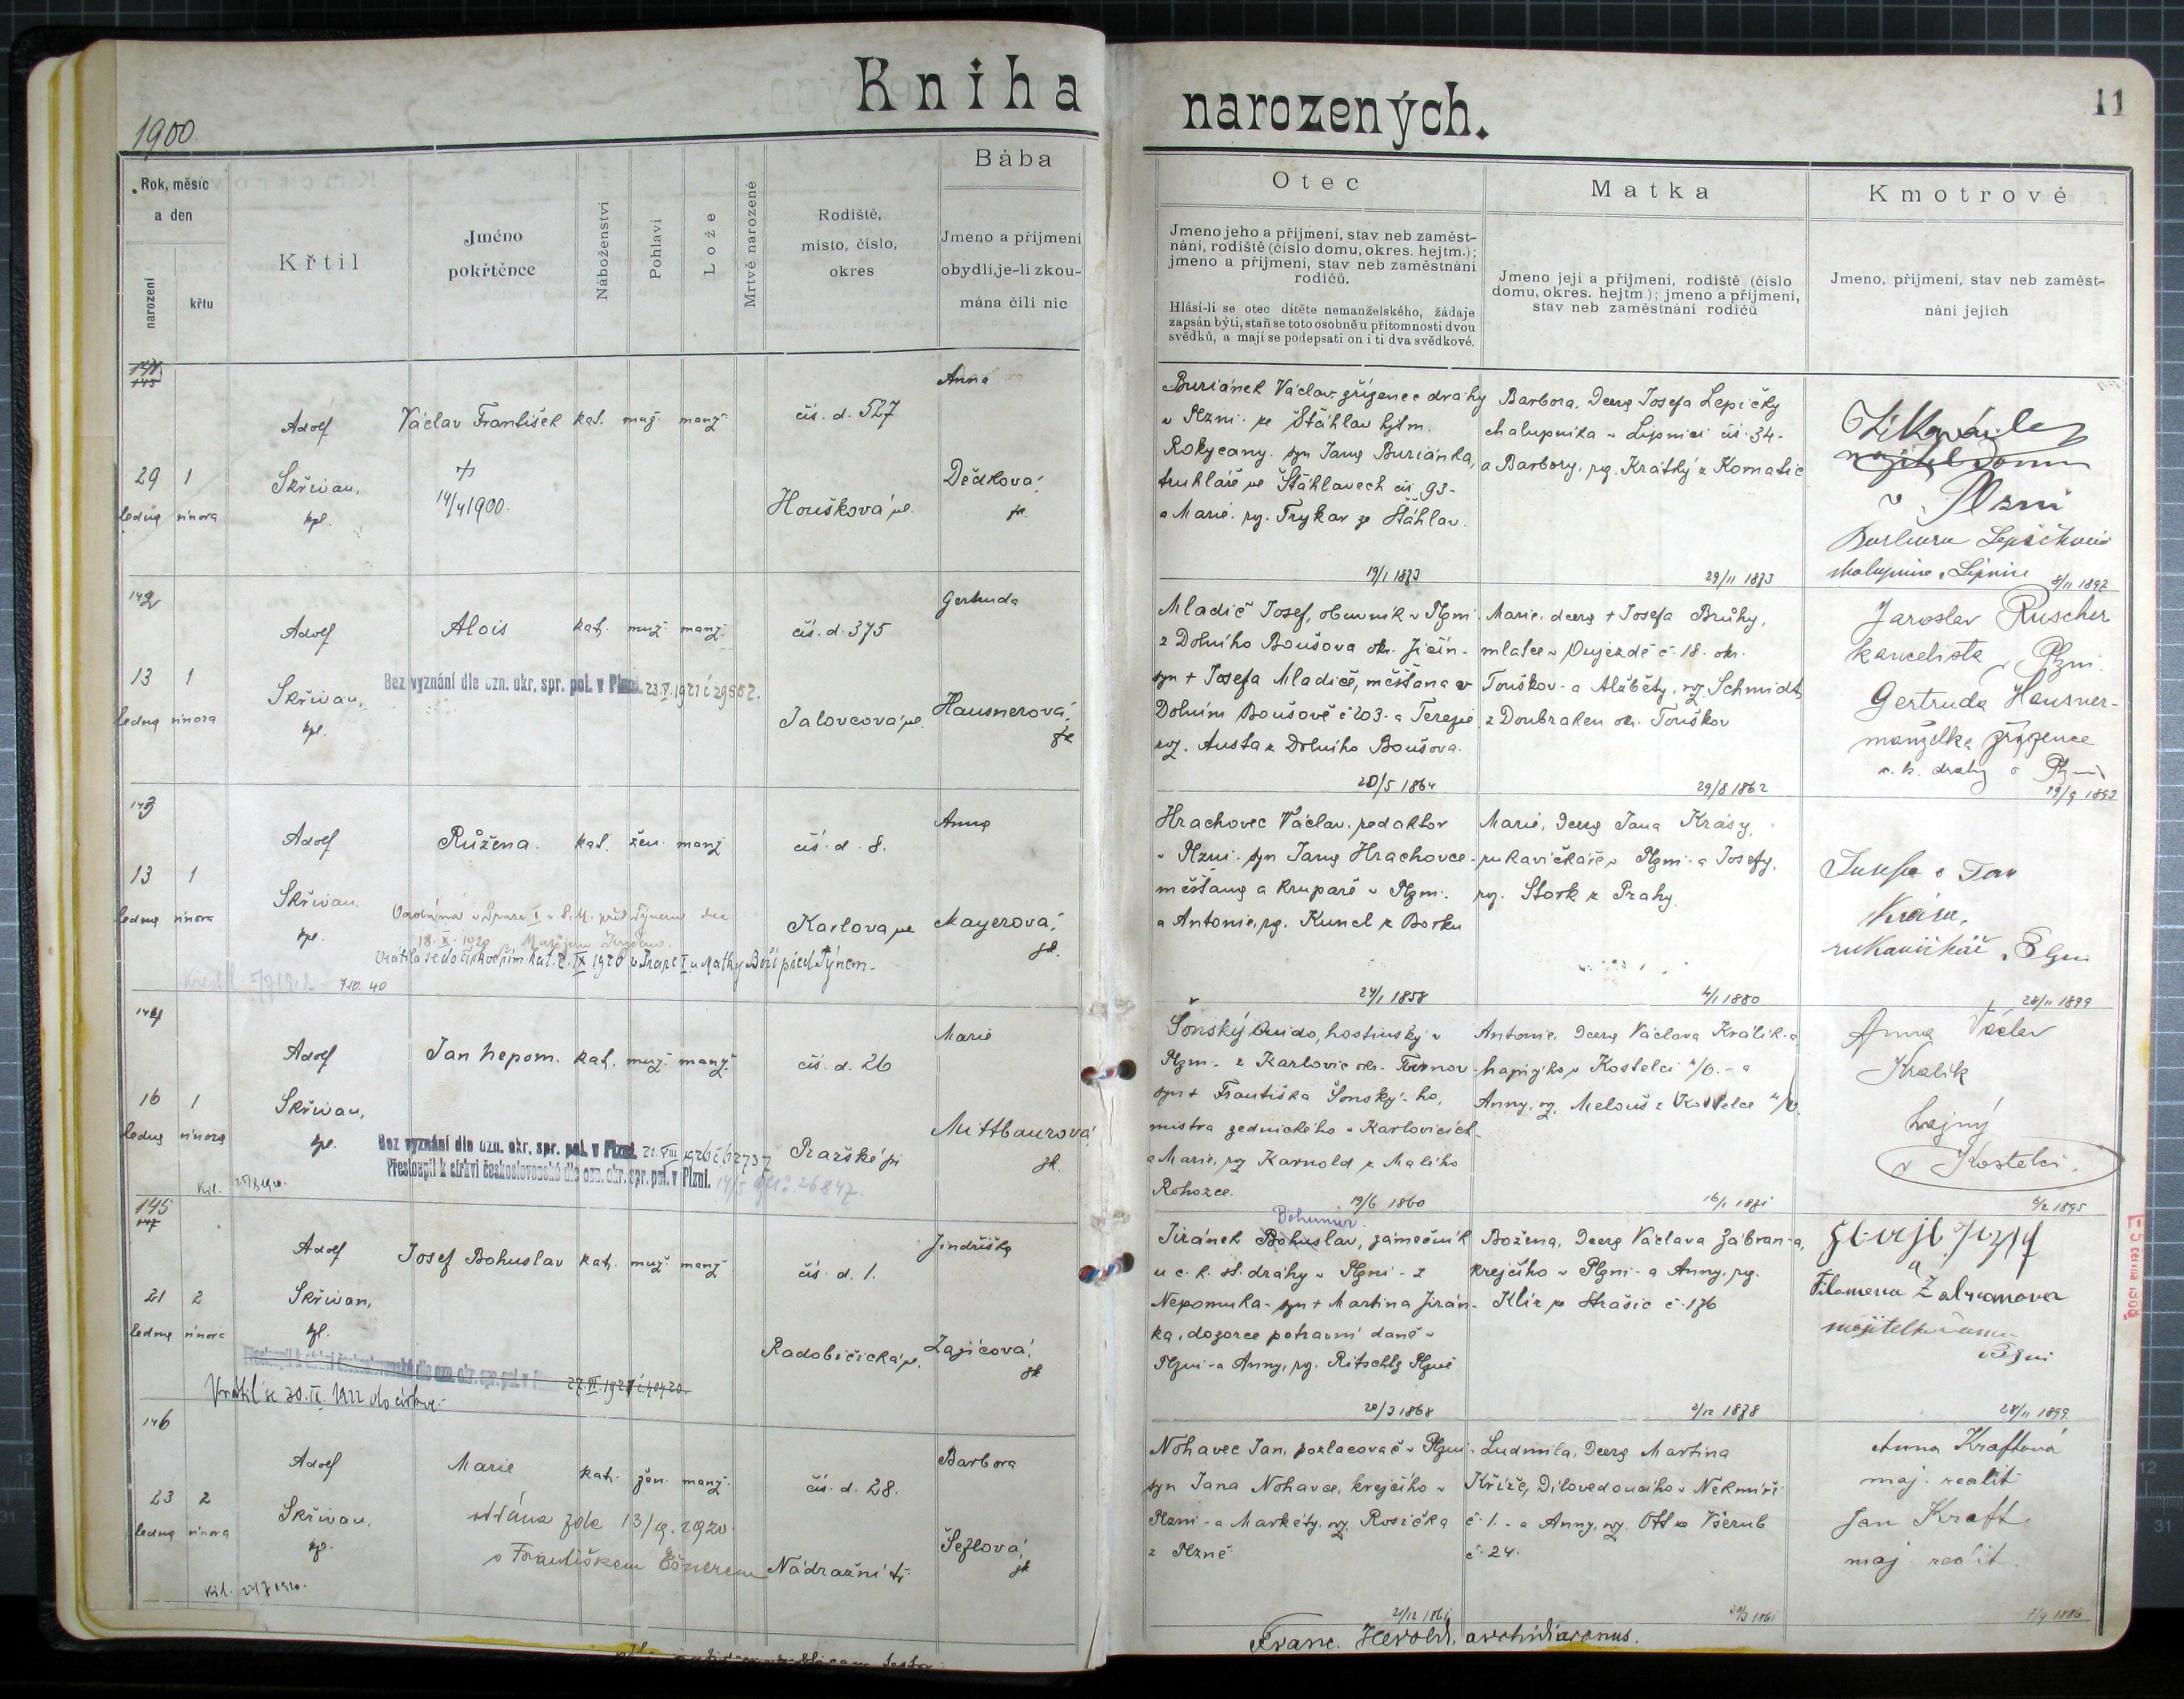 Kniha narozených.
11
1900.
Rok, měsíc
a den
narození
křtu
Křtil
Jméno
pokřtěnce
Náboženství
Pohlaví
Lože
Mrtvě narozené
Rodiště,
místo, číslo,
okres
Bába
Jmeno a přijmení
obydlí, je-li zkou-
mána čili nic
Otec
Jmeno jeho a přijmení, stav neb zaměst-
nání, rodiště (číslo domu, okres. hejtm.);
jmeno a přijmení, stav neb zaměstnání
rodičů.
Hlásí-li se otec dítěte nemanželského, žádaje
zapsán býti, staň se toto osobně u přítomnosti dvou
svědků, a mají se podepsati on i ti dva svědkové.
Matka
Jmeno její a přijmení, rodiště (číslo
domu, okres. hejtm.); jmeno a přijmení,
stav neb zaměstnání rodičů
Kmotrové
Jmeno, přijmení, stav neb zaměst-
nání jejich
29 ledna
1 února
Adolf
Skřivan,
kpl.
Václav František
14/4 1900.
kat. muž. manž.
čís. d. 527
Houškova ul.
Anna
Dědková
zk.
Buriánek Václav, zřízenec dráhy
v Plzni ze Šťáhlav hjtm.
Rokycany. syn Jana Buriánka,
truhláře ve Šťáhlavech čís. 93-
a Marie. roz. Trykar ze Šťáhlav.
19/1 1873
Barbora. Dcera Josefa Lepičky
chalupníka v Lipnici čís. 34-
a Barbory, roz. Krátký z Komatic
29/11 1873
majitel domu
v Plzni
Barbora Lepičková
Lipnice
8/11 1897
142
13 ledna
1 února
Adolf
Skřivan,
kpl.
Alois
kat. muž. manž.
Bez vyznání dle ozn. okr. spr. pol. v Plzni. 23.V.1921
čís. d. 375
Jalovcová ul.
Gertruda
Hausnerová,
zk
Mladič Josef, obuvník v Plzni
z Dolního Boušova okr. Jičín-
syn + Josefa Mladiče, měšťana v
Dolním Boušově č 203- a Terezie
roz. Austa z Dolního Boušova.
20/5 1864
Marie. dcera + Josefa Brůhy,
mlatce v Oujezdě č. 18. okr.
Touškov- a Alžběty, roz. Schmidt
z Doubraken okr. Touškov
29/8 1862
Jaroslav Ruscher
kancelista v Plzni.
Gertruda Hausner-
manželka zřízence
dráhy v Plzni
143
13 ledna
1 února
Adolf
Skřivan
kpl.
Růžena.
kat. žen. manž.
18. X. 1920
Vrátila se do církve řím. kat. v Praze I. u Matky Boží před Týnem.
7.10. 40
čís. d. 8.
Karlova ul
Anna
Mayerová,
zk.
Hrachovec Václav, redaktor
v Plzni. syn Jana Hrachovce-
měšťana a krupaře v Plzni.
a Antonie, roz. Kuncl z Borku
24/1 1858
Marie, Dcera Jana Krásy,
rukavičkáře v Plzni- a Josefy,
roz. Stork z Prahy.
4/1 1880
Josefa a Jan
Krása,
rukavičkář v Plzni
28/11 1899
144
16 ledna
1 února
Adolf
Skřivan,
kpl.
Jan Nepom.
kat. muž. manž.
Bez vyznání dle ozn. okr. spr. pol. v Plzni
Přestoupil k církvi československé dle ozn. okr. spr. pol. v Plzni.
čís. d. 26
Pražské př.
Marie
Mittbaurová
zk.
Šonský Quido, hostinský v
Plzni- z Karlovic okr. Turnov
syn + Františka Šonský-ho,
mistra zednického v Karlovicích-
a Marie, roz Karnold z Malého
Rohozce.
19/6 1860
Antonie, Dcera Václava Králík-a
hajného v Kostelci n/O.- a
Anny, roz. Melouš z Kostelce n/O.
16/1 1871
Anna Václav
Kralík
hajný
v Kostelci.
6/2 1895
145
147
21 ledna
2 února
Adolf
Skřivan,
kpl.
Josef Bohuslav
kat. muž. manž
Přestoupil k církvi československé dle ozn. okr. spr. pol. v Plzni
Vrátil se 30. IX. 1922 do církve.
čís. d. 1.
Radobičická ul.
Jindřiška
Zajícová,
zk
Bohumír
Jiránek Bohuslav, zámečník
u c. k. st. dráhy v Plzni- z
Nepomuka- syn + Martina Jirán-
ka, dozorce potravní daně v
Plzni- a Anny, roz. Ritschl z Plzně
20/3 1868
Božena, Dcera Václava Zábran-a,
krejčího v Plzni- a Anny, roz.
Klír ze Strašic č. 176
Filomena Zabranova
majitelka domu
Plzni
28/11 1899
146
23 ledna
2 února
Adolf
Skřivan,
kpl.
Marie
kat. žen. manž.
oddána zde 13/9. 1920.
s Františkem
čís. d. 28.
Nádražní tř.
Barbora
Šeflová,
zk
Nohavec Jan, pozlacovač v Plzni-
syn Jana Nohavce, krejčího v
Plzni- a Markéty, roz. Rosička
z Plzně
Ludmila, Dcera Martina
Kříže, Dílovedoucího v Nekmíři
č. 1.- a Anny, roz. Ott ze Všerub
č. 24.
Anna Kraftová
maj. realit
Jan Kraft
maj. realit.
Franc. Herold, archidiaconus.